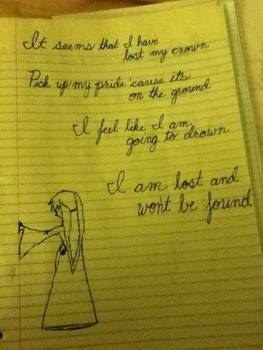 It seems that I have
lost my crown
Pick up my pride 'cause its
on the ground
I feel like I am
going to drown
I am lost and
wont be found